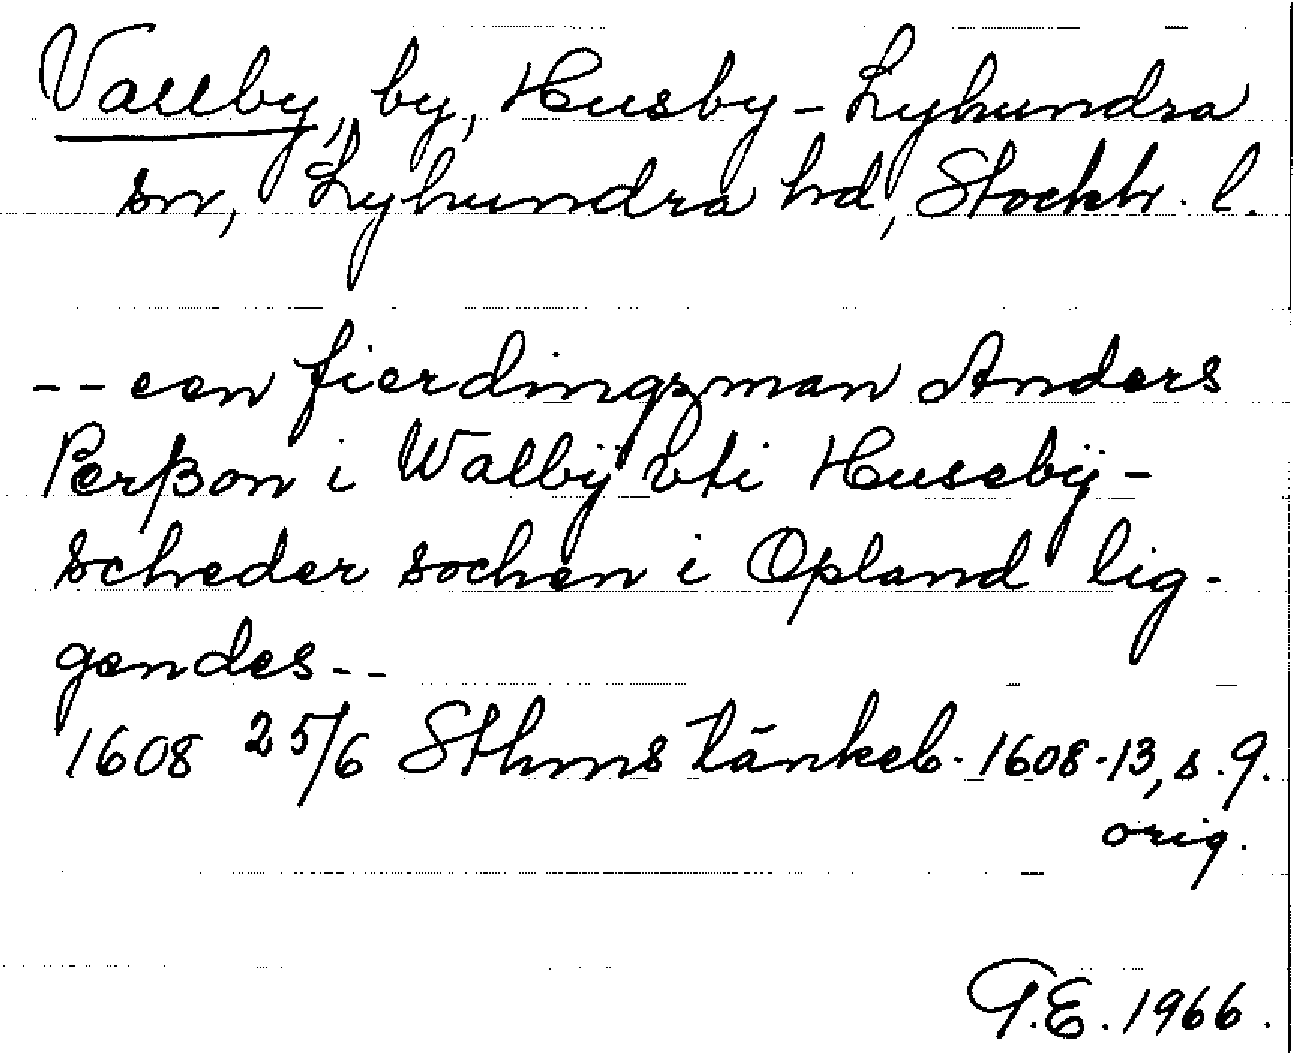 Vallby, by, Husby-Lyhundra
sn, Lyhundra hd, Stockh. l.
-- een fierdingzman Anders
Perßon i Walbÿ vti Husebÿ-
scheder sochen i Opland lig-
gendes--
1608 25/6 Sthms tänkeb. 1608-13, s. 9.
orig.
G.E. 1966.